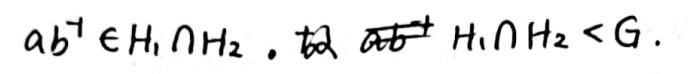 ab⁻¹ ∈ H₁ ∩ H₂ . 故 H₁ ∩ H₂ < G .